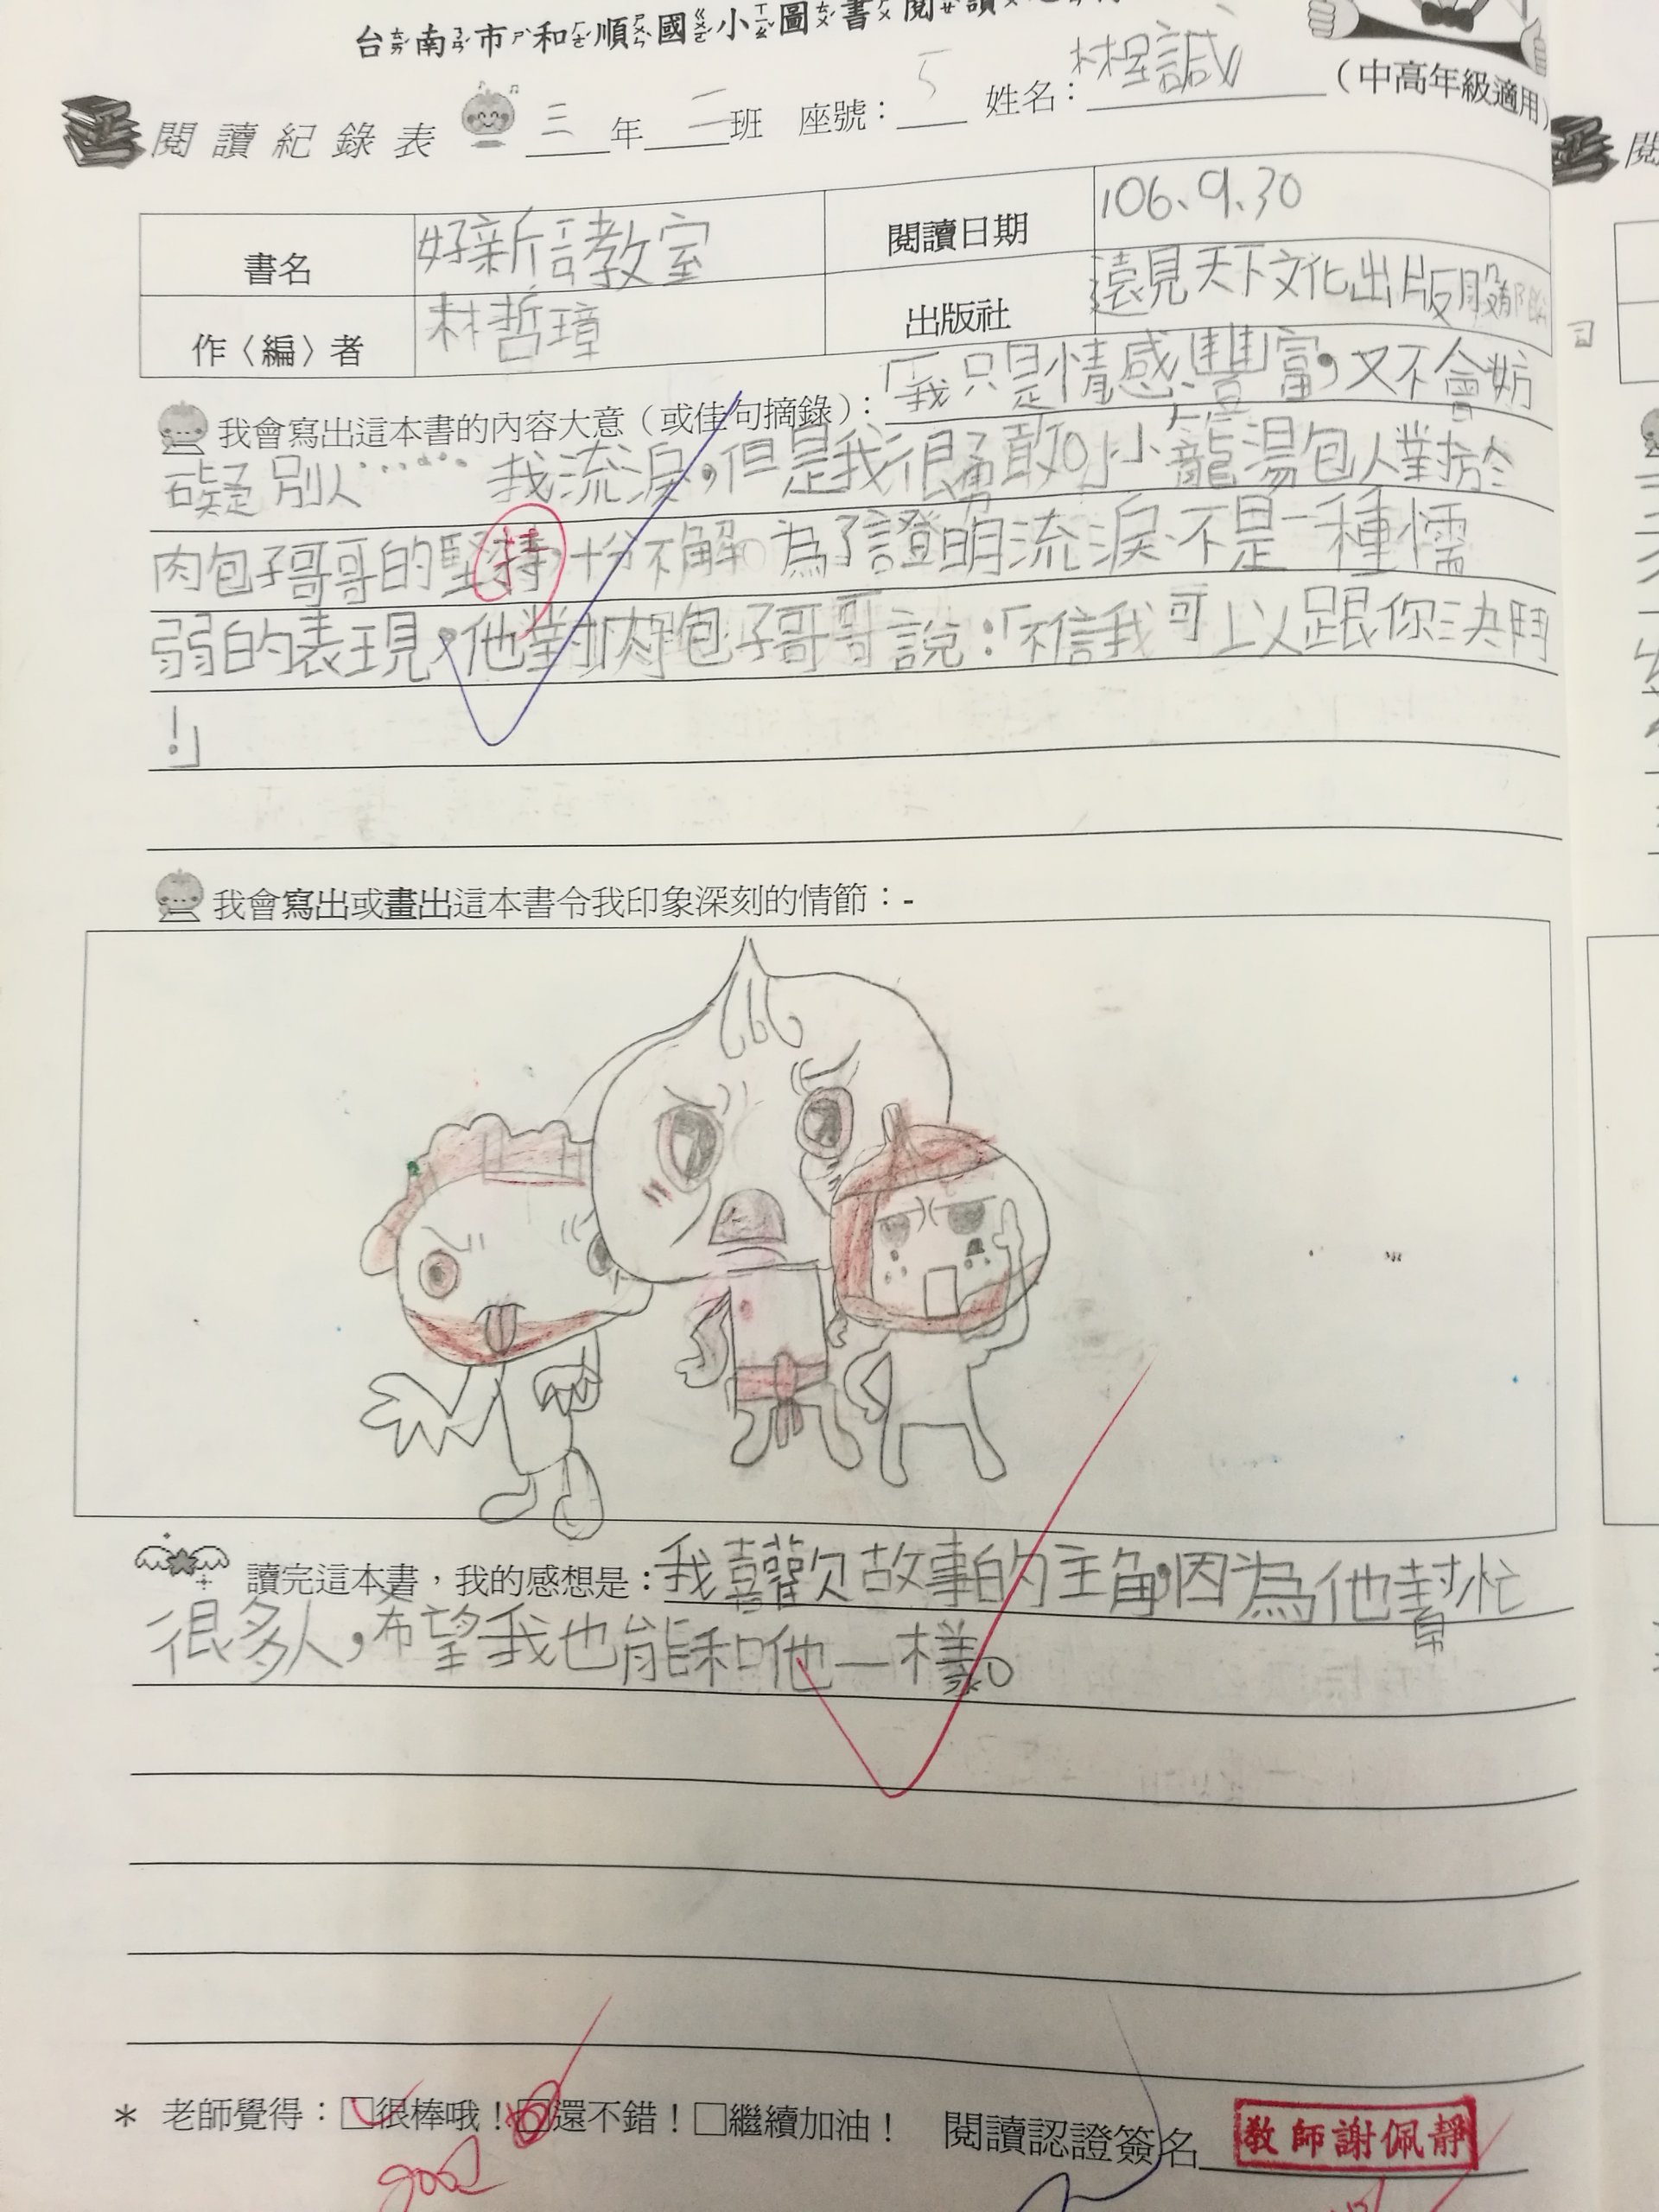 台南市和順國小圖書閱讀
閱讀紀錄表 三年二班 座號：5 姓名：林聖誠 （中高年級適用）
書名 好新詩教室 閱讀日期 106、9、30
作〈編〉者 林哲璋 出版社 遠見天下文化出版股
我會寫出這本書的內容大意（或佳句摘錄）：「我只是情感豐富，又不會妨
礙別人……我流淚，但是我很勇敢。小籠湯包人對於
肉包子哥哥的堅持十分不解。為了證明流淚不是一種懦
弱的表現，他對肉包子哥哥說：「不信我可以跟你決鬥
！」
我會寫出或畫出這本書令我印象深刻的情節：-
讀完這本書，我的感想是：我喜歡故事的主角，因為他幫忙
很多人，希望我也能和他一樣。
＊ 老師覺得：□很棒哦！□還不錯！□繼續加油！ 閱讀認證簽名 教師謝佩靜
good